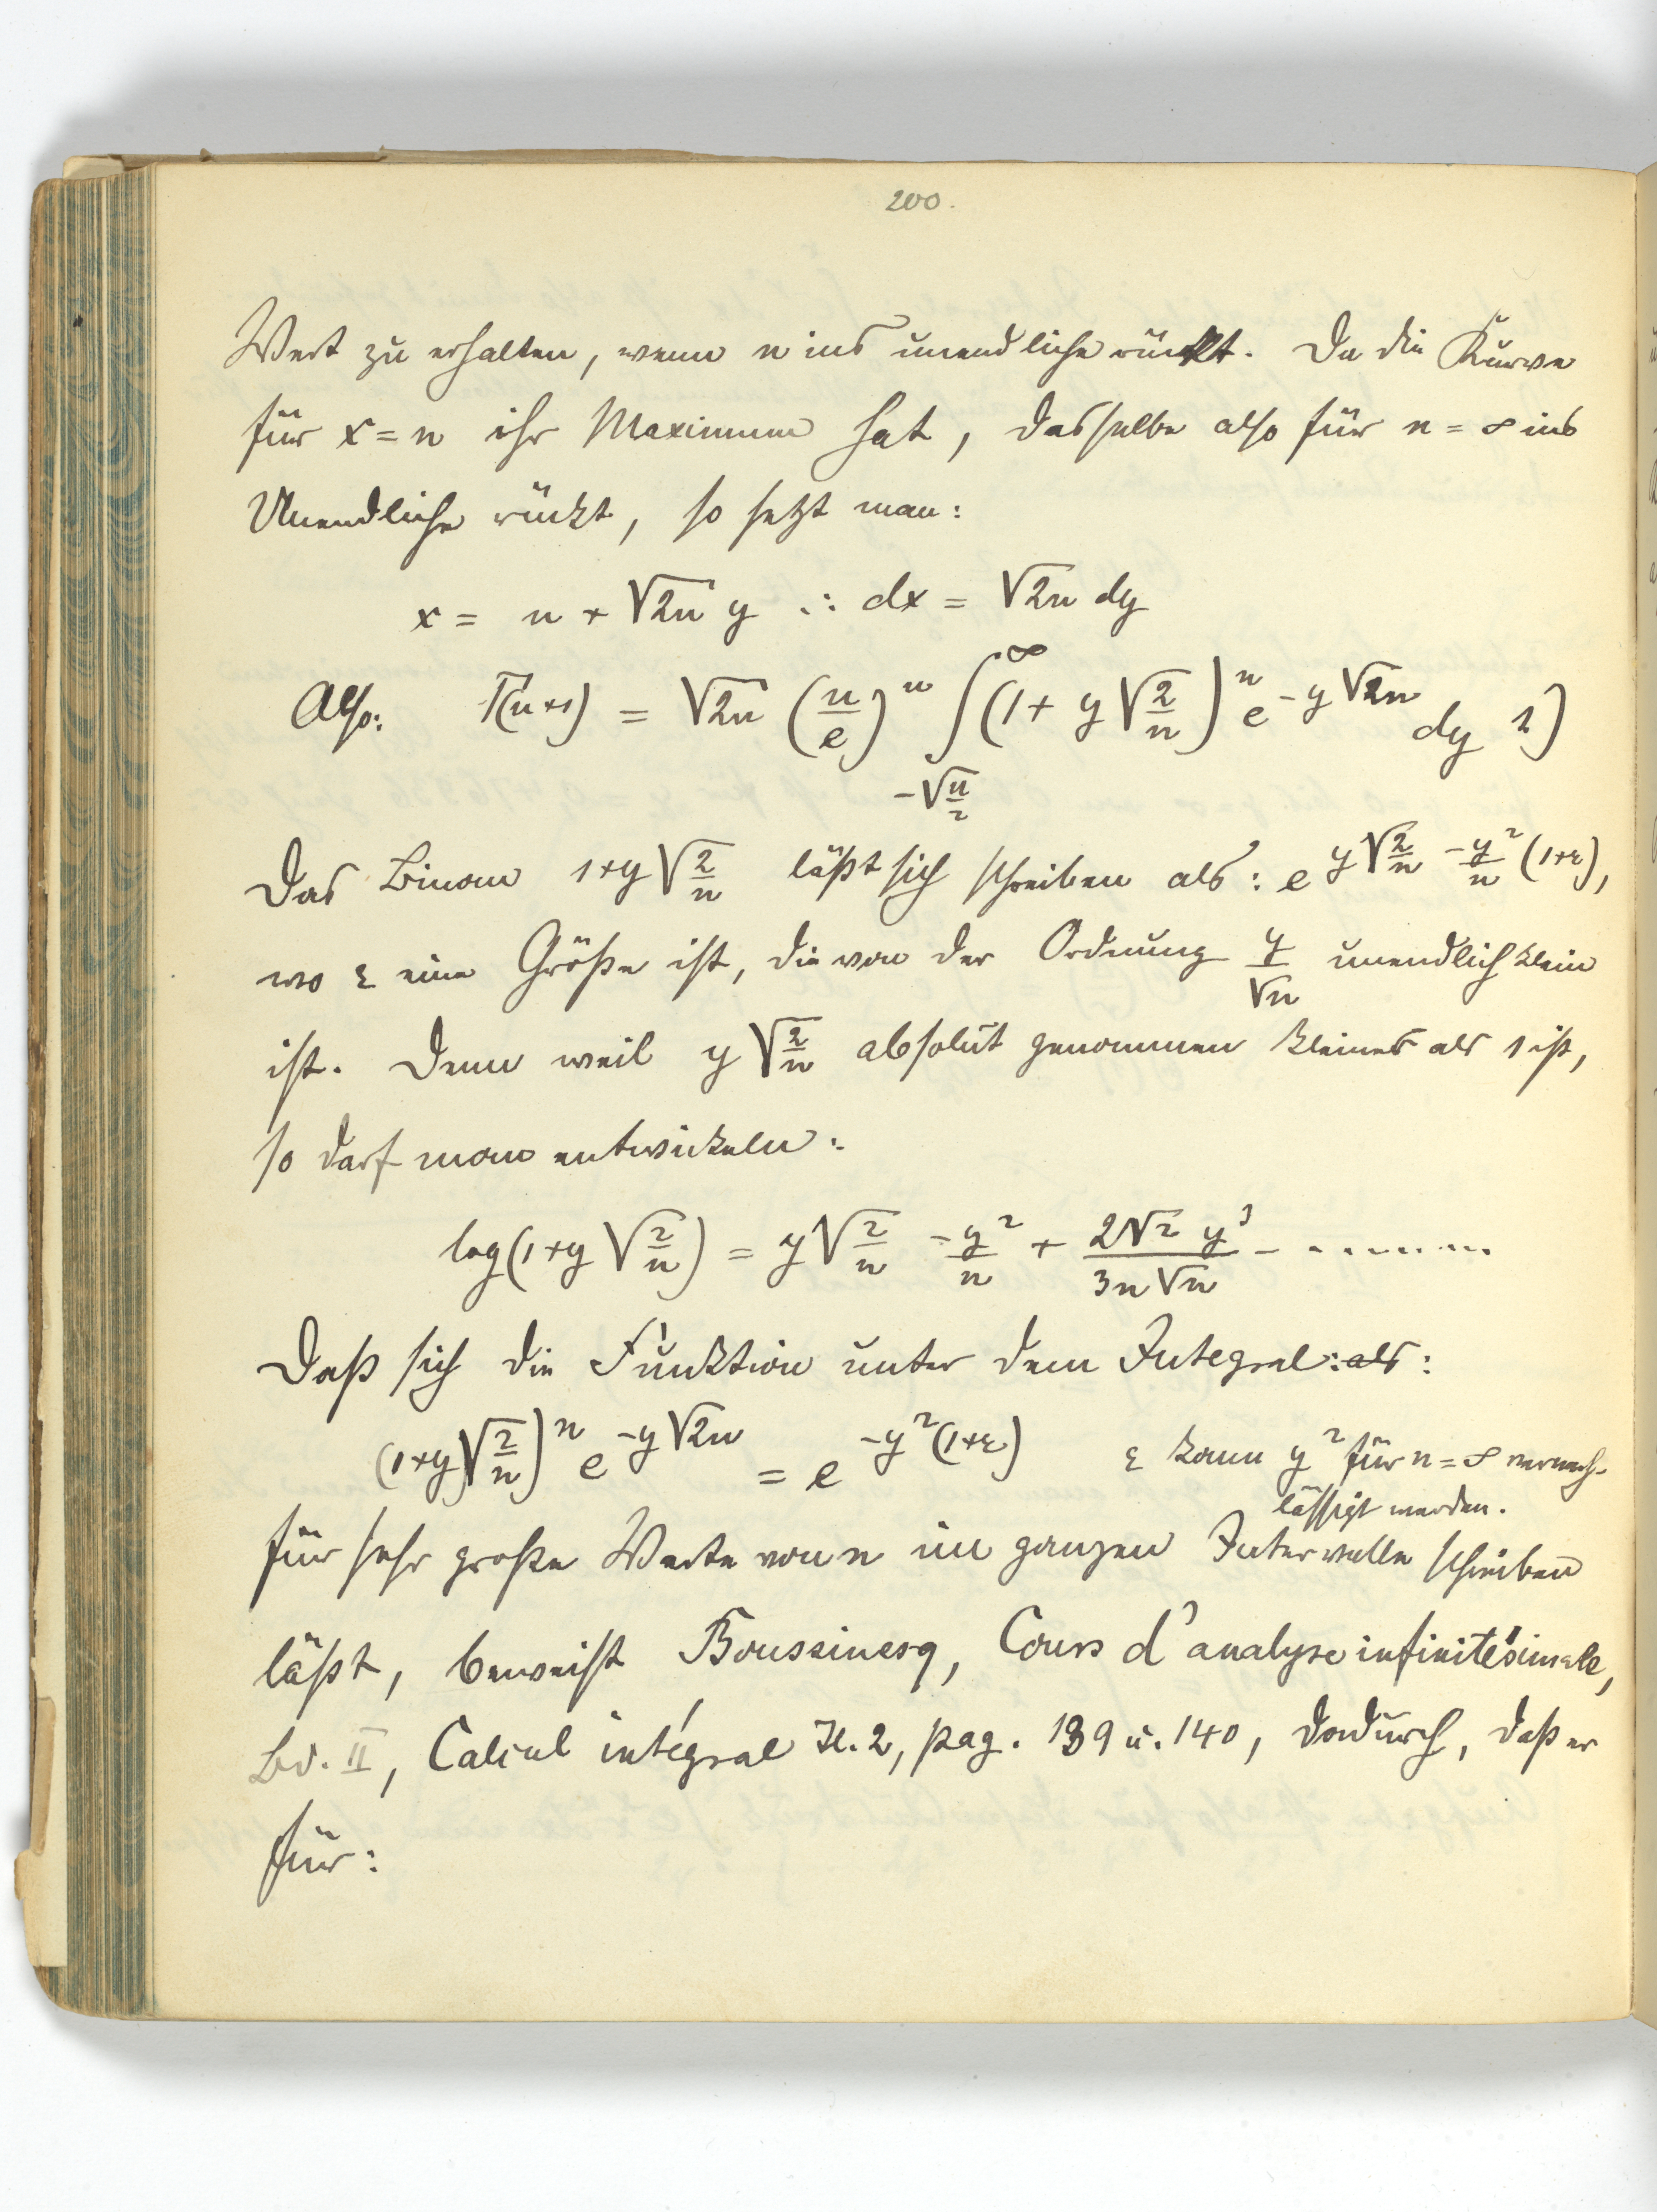 200.
Wert zu erhalten, wenn n ins unendliche rückt. Da die Kurve
für x = n ihr Maximum hat, dasselbe also für n = ∞ ins
Unendliche rückt, so setzt man:
x = n + √2n y ∴ dx = √2n dy
Also: Γ(n+1) = √2n (n/e)^n ∫_{-√(n/2)}^{∞} (1 + y √(2/n))^n e^{-y √2n} dy 1)
Das Binom 1+y√(2/n) läßt sich schreiben als: e^{y√(2/n) - y²/n (1+ε)},
wo ε eine Größe ist, die von der Ordnung y/√n unendlich klein
ist. Denn weil y √(2/n) absolut genommen kleiner als 1 ist,
so darf man entwickeln:
log(1+y √(2/n)) = y √(2/n) - y²/n + 2√2 y³/3n√n - ........
Daß sich die Funktion unter dem Integral: als:
(1+y√(2/n))^n e^{-y √2n} = e^{-y²(1+ε)} ε kann y² für n = ∞ vernach-
lässigt werden.
für sehr große Werte von n im ganzen Intervalle schreiben
läßt, beweist Boussinesq, Cours d'analyse infinitésimale,
Bd. II, Calcul intégral H. 2, pag. 139 u. 140, dadurch, daß er
für: